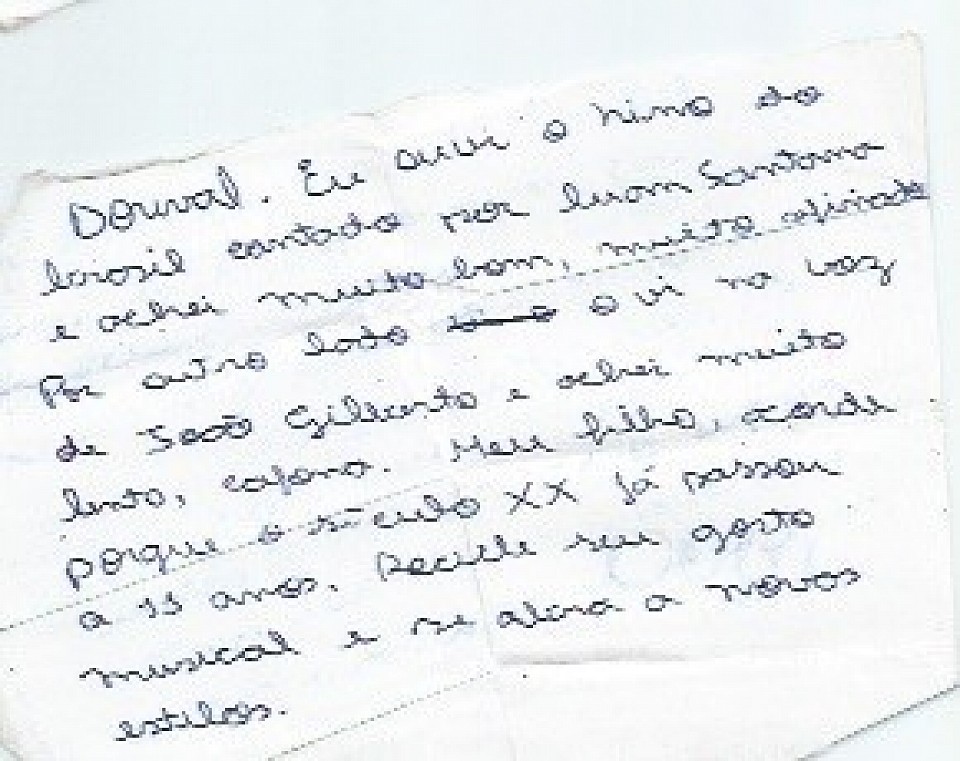 Dorival. Eu ouvi o hino do
brasil cantado por luan Santana
e achei muito bom, muito afinado
Por outro lado o vi na voz
de João Gilberto e achei muito
lento, cafona. Meu filho, acorde
porque o século XX já passou
a 11 anos. Recicle seu gosto
musical e se abra a novos
estilos.